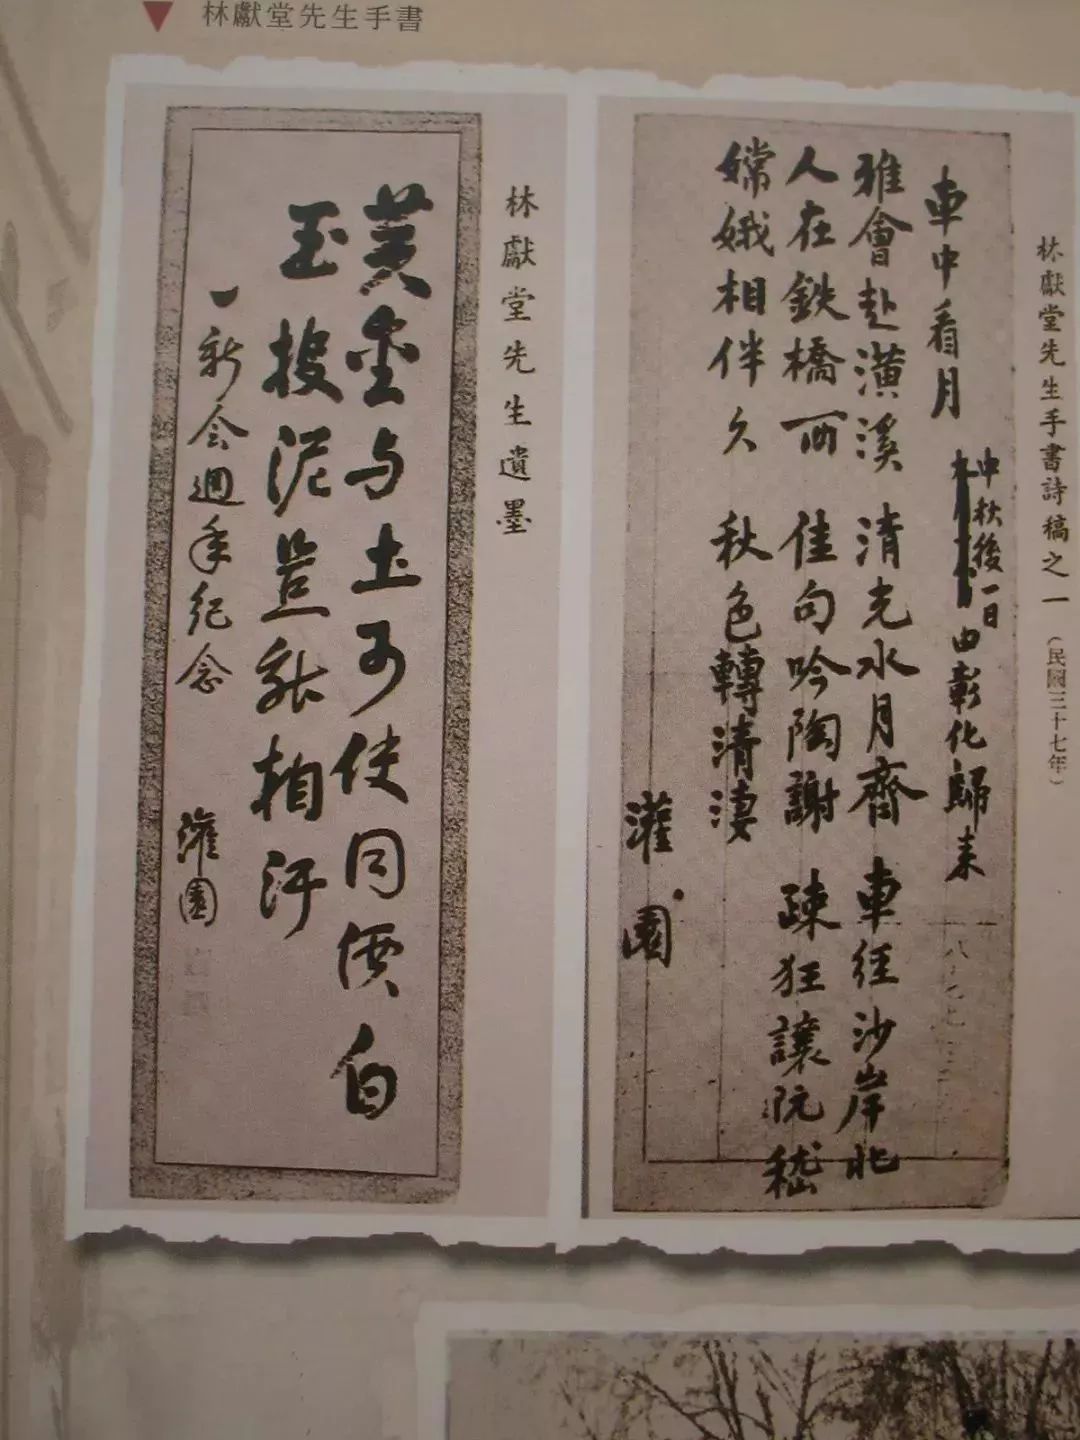 林獻堂先生手書
林獻堂先生手書詩稿之一（民國三十七年）
車中看月
中秋後一日
由彰化歸來
雅會赴潢溪 清光水月齊 車徑沙岸北
人在鉄橋西 佳句吟陶謝 疎狂讓阮嵇
嫦娥相伴久 秋色轉清淒
灌園
林獻堂先生遺墨
黃金与土可使同價白
玉投泥豈能相汙
一新会週年紀念
灌園